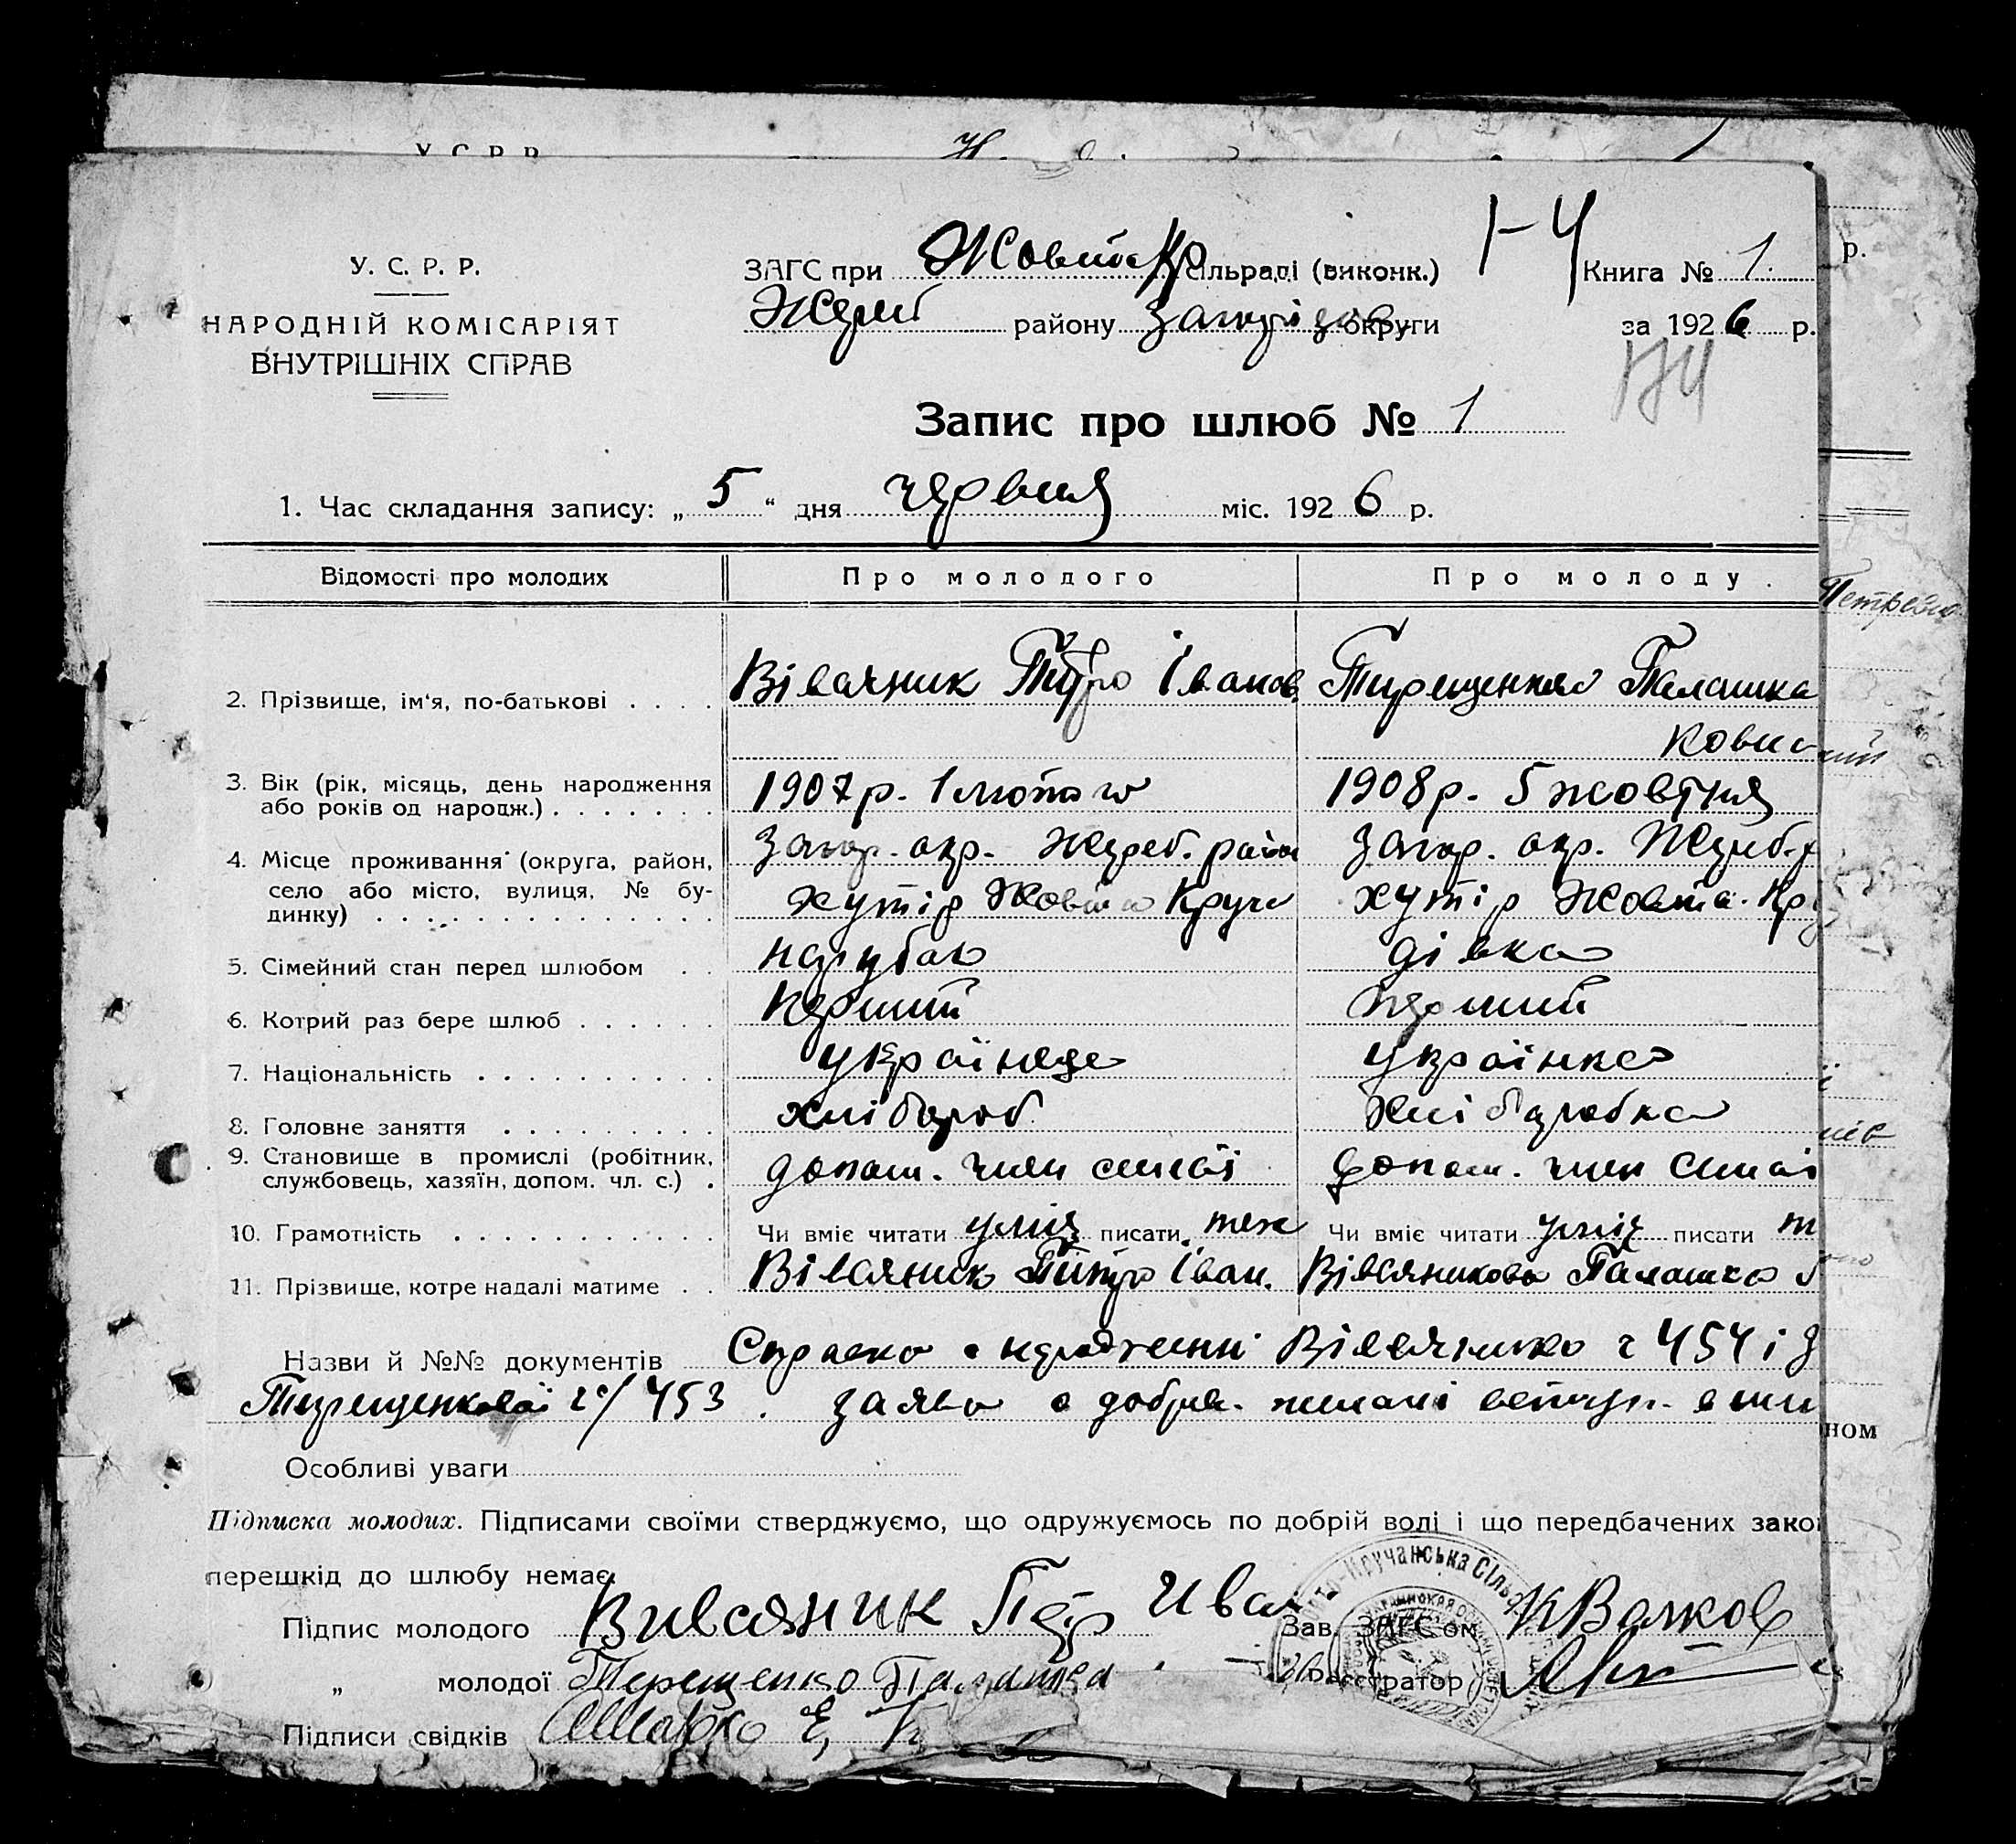 У. С. Р. Р.
НАРОДНІЙ КОМІСАРІЯТ
ВНУТРІШНІХ СПРАВ
ЗАГС при Жовтокр сільраді (виконк.)
Жереб району Запоріз округи
Книга № 1.
за 1926 р.
Запис про шлюб № 1
1. Час складання запису: „ 5 “ дня червня міс. 1926 р.
Відомості про молодих
Про молодого
Про молоду.
2. Прізвище, ім'я, по-батькові
Вівсяник Петро Іванов.
Терещенкова Палашка
3. Вік (рік, місяць, день народження
або років од народж.)
1907 р. 1 лютого
1908 р. 5 жовтня
4. Місце проживання (округа, район,
село або місто, вулиця, № бу-
динку)
Запор. окр. Жереб. район
хутір Жовта Круча
Запор. окр. Жереб. р
хутір Жовта Кр
5. Сімейний стан перед шлюбом
парубок
дівка
6. Котрий раз бере шлюб
перший
перший
7. Національність
українець
українка
8. Головне заняття
хлібороб
хліборобка
9. Становище в промислі (робітник,
службовець, хазяїн, допом. чл. с.)
допом. член сім'ї
допом. член сім'ї
10. Грамотність
Чи вміє читати уміє писати теж
Чи вміє читати уміє писати т
11. Прізвище, котре надалі матиме
Вівсяник Петро Іван.
Вівсяникова Палашка
Назви й №№ документів Справка о народженні Вівсяника ч 454 і
Терещенкової ч/ 453. заява о добров. желані вступ. в
Особливі уваги
Підписка молодих. Підписами своїми стверджуємо, що одружуємось по добрій волі і що передбачених зако
перешкід до шлюбу немає.
Підпис молодого Вивсяник Петр Иван
Зав. ЗАГС'ом КВолков
„ молодої Терещенко Палашка
Реєстратор
Підписи свідків Шапко Е,